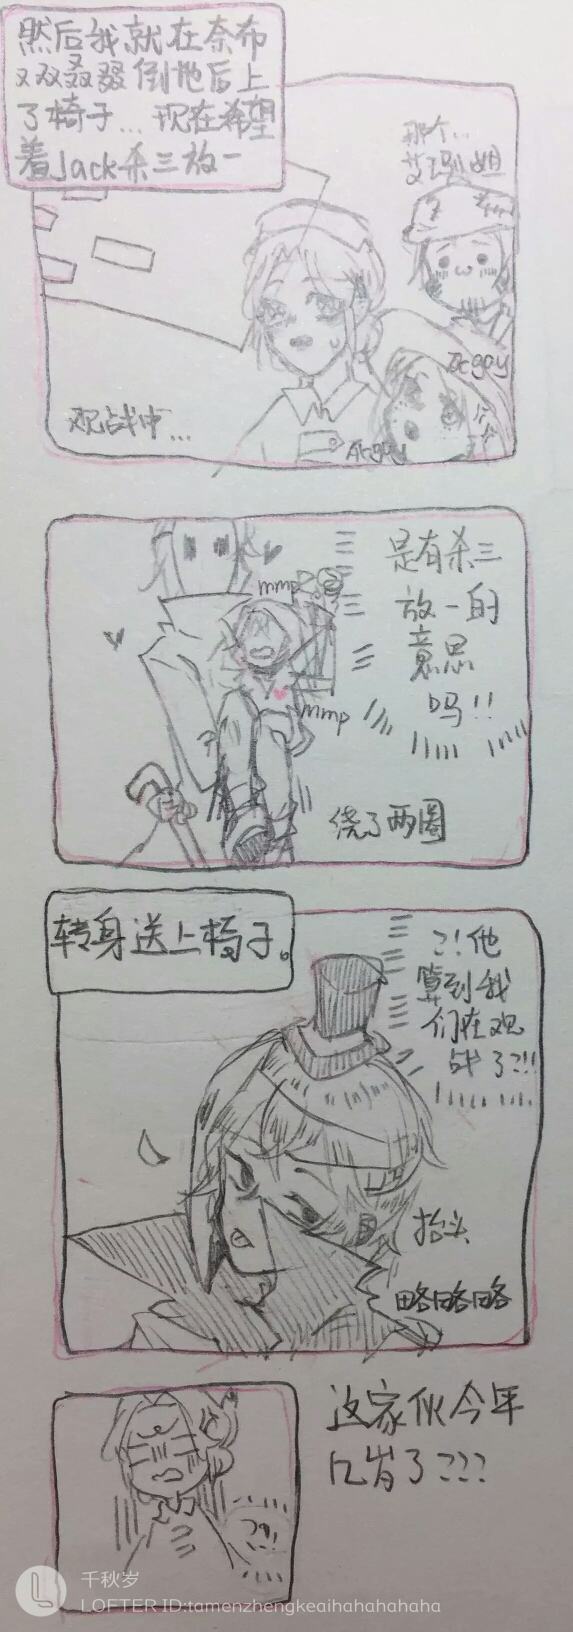 然后我就在奈布
双双叒叕倒地后上
了椅子...现在希望
着Jack杀三放一
那个...
艾玛小姐
观战中...
是有杀三
放一的
意思
吗!!
mmp
mmp
绕了两圈
转身送上椅子。
?!他
算到我
们在观
战了?!!
抬头
略略略
这家伙今年
几岁了???
?!!
千秋岁
LOFTER ID:tamenzhengkeaihahahahaha